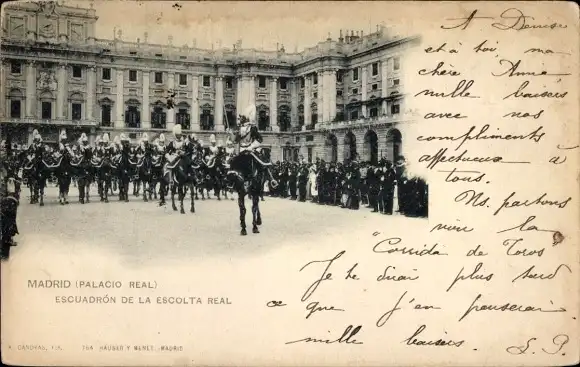 A Denise
et à toi, ma
chère Annie,
mille baisers
avec nos
compliments
affectueux à
tous.
Ns. partons
voir la
"Corrida de Toros"
Je te dirai plus tard
ce que j'en penserai
mille baisers. L. P.
MADRID (PALACIO REAL)
ESCUADRÓN DE LA ESCOLTA REAL
A. CÁNOVAS, FOT. 164 HAUSER Y MENET.-MADRID